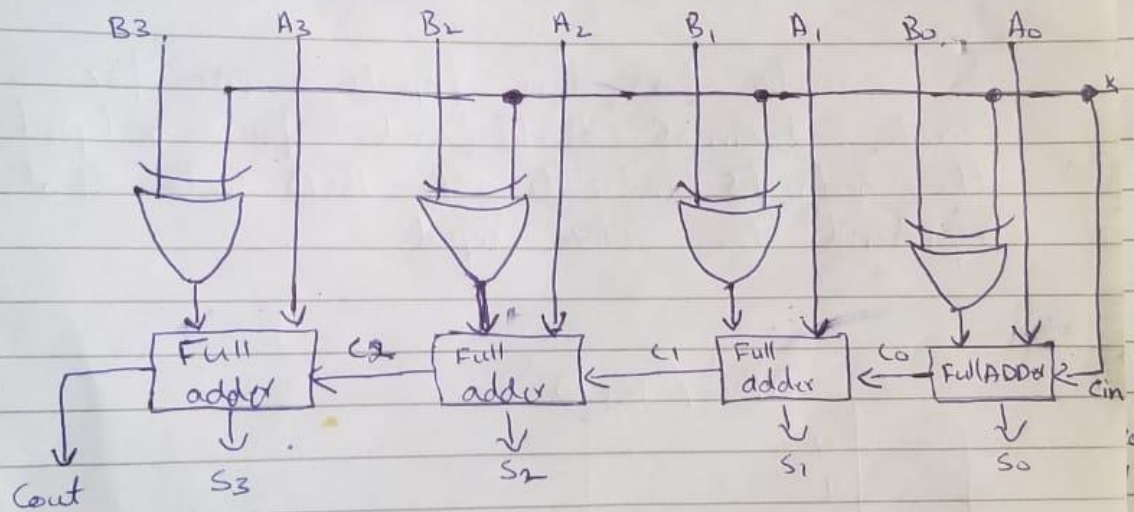 B3 A3 B2 A2 B1 A1 B0 A0
K
Full adder C2 Full adder C1 Full adder C0 Full ADDer Cin
Cout S3 S2 S1 S0